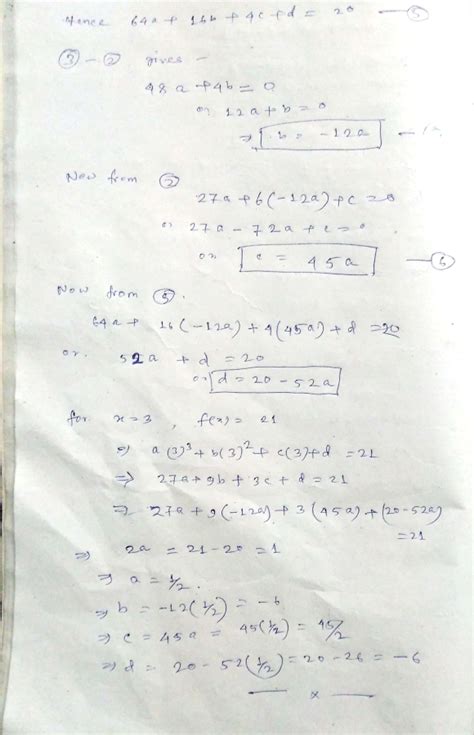 Hence 64a + 16b + 4c + d = 20 — ⑤
③ - ② gives -
48a + 4b = 0
or 12a + b = 0
⇒ b = -12a
Now from ②
27a + 6(-12a) + c = 0
or 27a - 72a + c = 0
or c = 45a — ⑥
Now from ⑤.
64a + 16(-12a) + 4(45a) + d = 20
or. 52a + d = 20
or d = 20 - 52a
for x = 3, f(x) = 21
⇒ a(3)³ + b(3)² + c(3) + d = 21
⇒ 27a + 9b + 3c + d = 21
⇒ 27a + 9(-12a) + 3(45a) + (20-52a) = 21
⇒ 2a = 21 - 20 = 1
⇒ a = 1/2.
⇒ b = -12(1/2) = -6
⇒ c = 45a = 45(1/2) = 45/2
⇒ d = 20 - 52(1/2) = 20 - 26 = -6
— x —